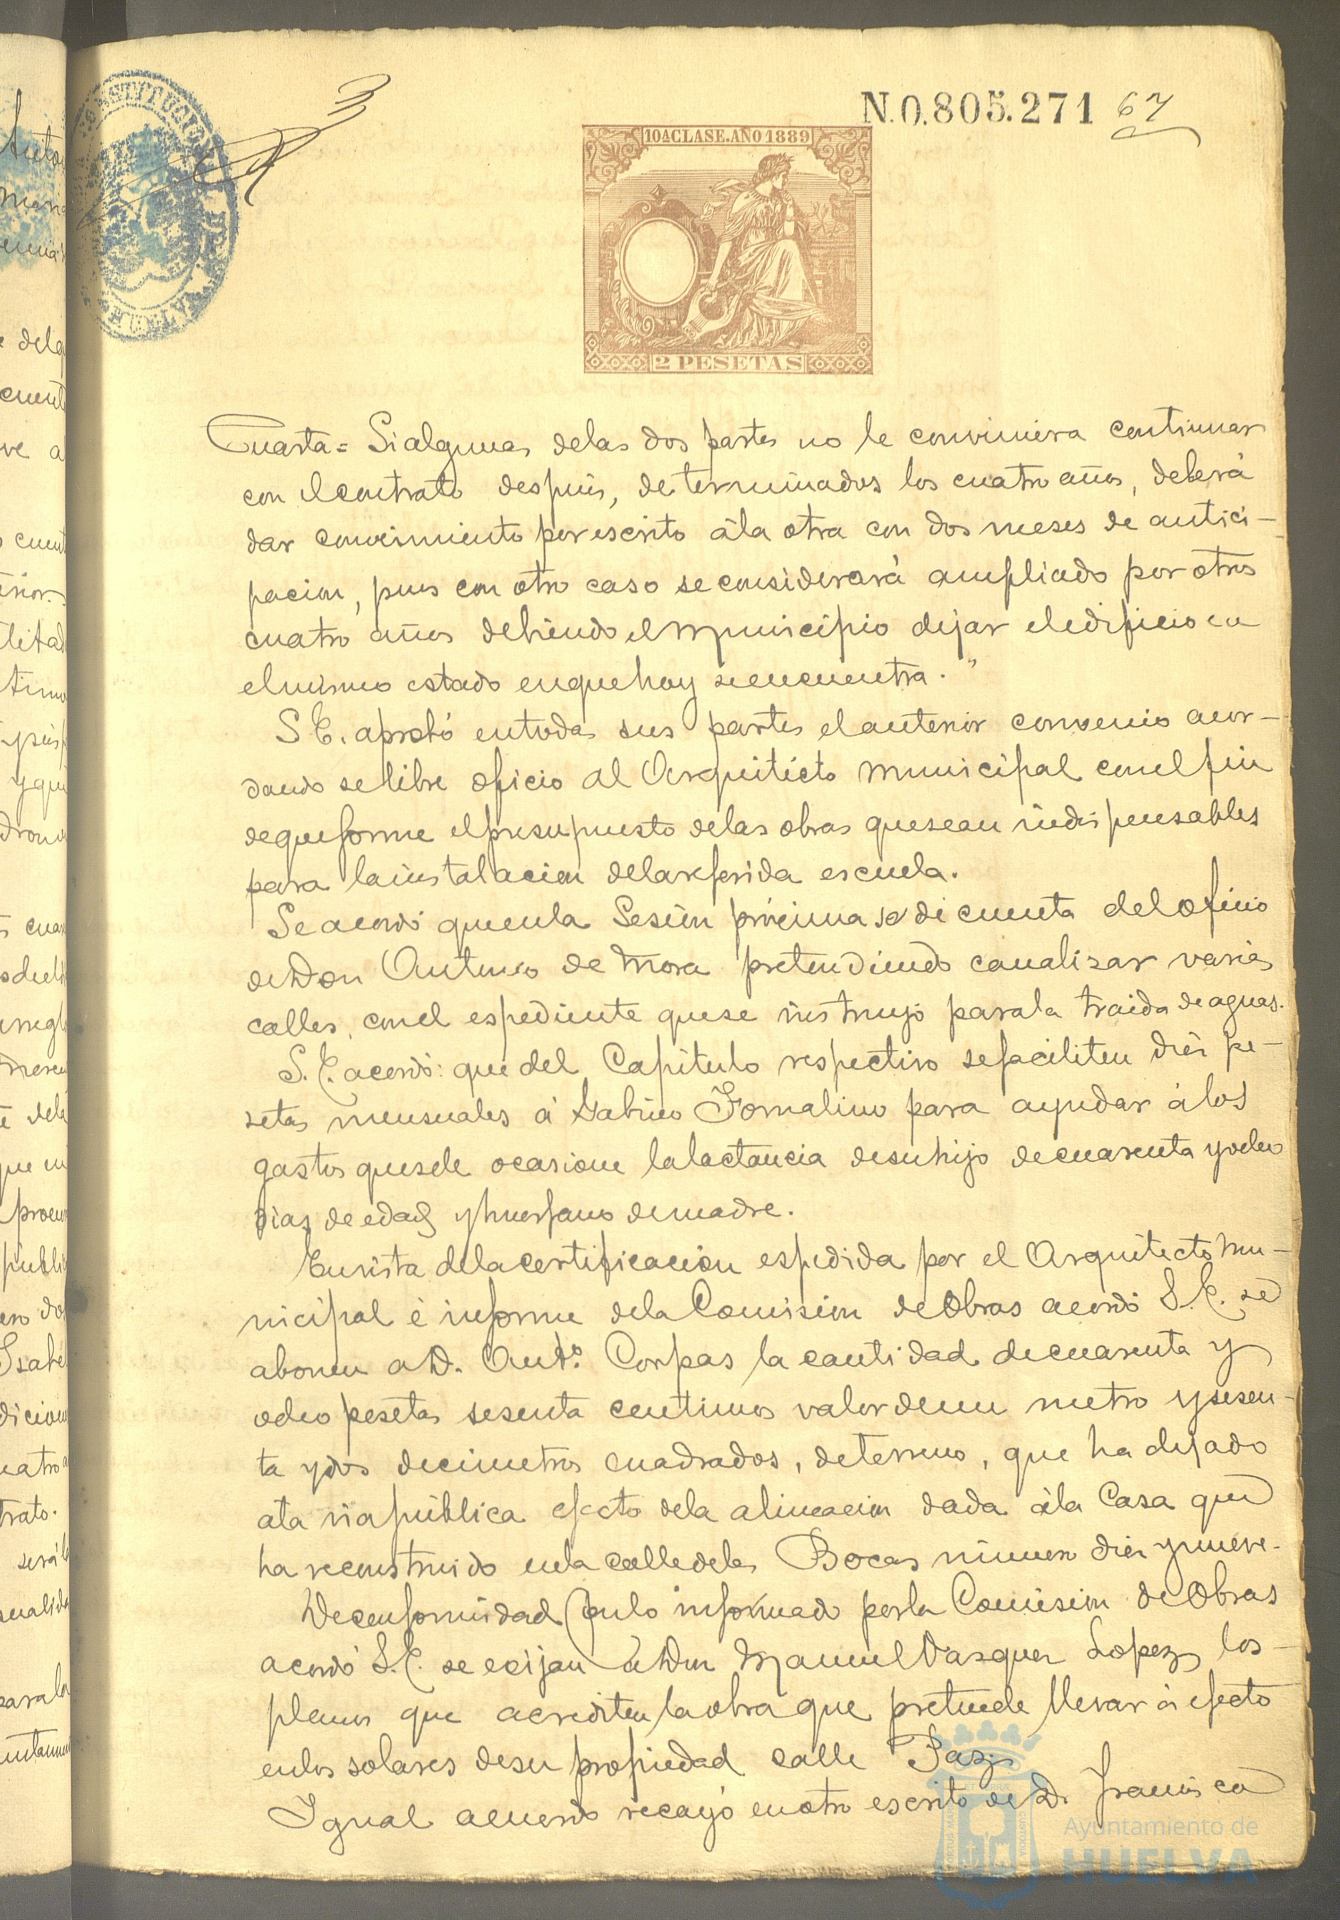 N.0.805.271 67
10ª CLASE. AÑO 1889
2 PESETAS
Cuarta = Si alguna, delas dos partes no le conviniera continuar
con el contrato despues, determinados los cuatro años, deberá
dar convimiento por escrito ála otra con dos meses de antici-
pacion, pues con otro caso se considerará ampliado por otros
cuatro años debiendo el Municipio dejar el edificio en
el mismo estado en que hoy se encuentra."
S. E. aprobó en todas sus partes el anterior convenio acor-
dando se libre oficio al Arquitecto municipal con el fin
de que forme el presupuesto de las obras que sean indispensables
para la instalacion dela referida escuela.
Se acordó que en la Sesión próxima se dé cuenta del oficio
de Don Antonio de Mora pretendiendo canalizar varias
calles, con el espediente que se instruyó para la traida de aguas.
S. E. acordó: que del Capítulo respectivo se faciliten diez pe-
setas mensuales á Sabino Fornalino para ayudar á los
gastos que sele ocasione la lactancia de su hijo de cuarenta y ocho
dias de edad y huerfano de madre.
En vista dela certificacion espedida por el Arquitecto Mu-
nicipal é informe dela Comision de Obras acordó S. E. se
abonen a D. Antº Corpas la cantidad de cuarenta y
ocho pesetas sesenta centimos valor de un metro y sesen-
ta y dos decimetros cuadrados, de terreno, que ha dejado
ala via pública efecto dela alineacion dada ála Casa que
ha reconstruido en la calle delas Bocas número diez y nueve.
De conformidad con lo informado por la Comision de Obras
acordó S. E. se exijan á Don Manuel Vazquez Lopez, los
planos que acrediten la obra que pretende llevar á efecto
en los solares de su propiedad calle Paz.
Igual acuerdo recayó en otro escrito de D. Francisco
Ayuntamiento de
HUELVA